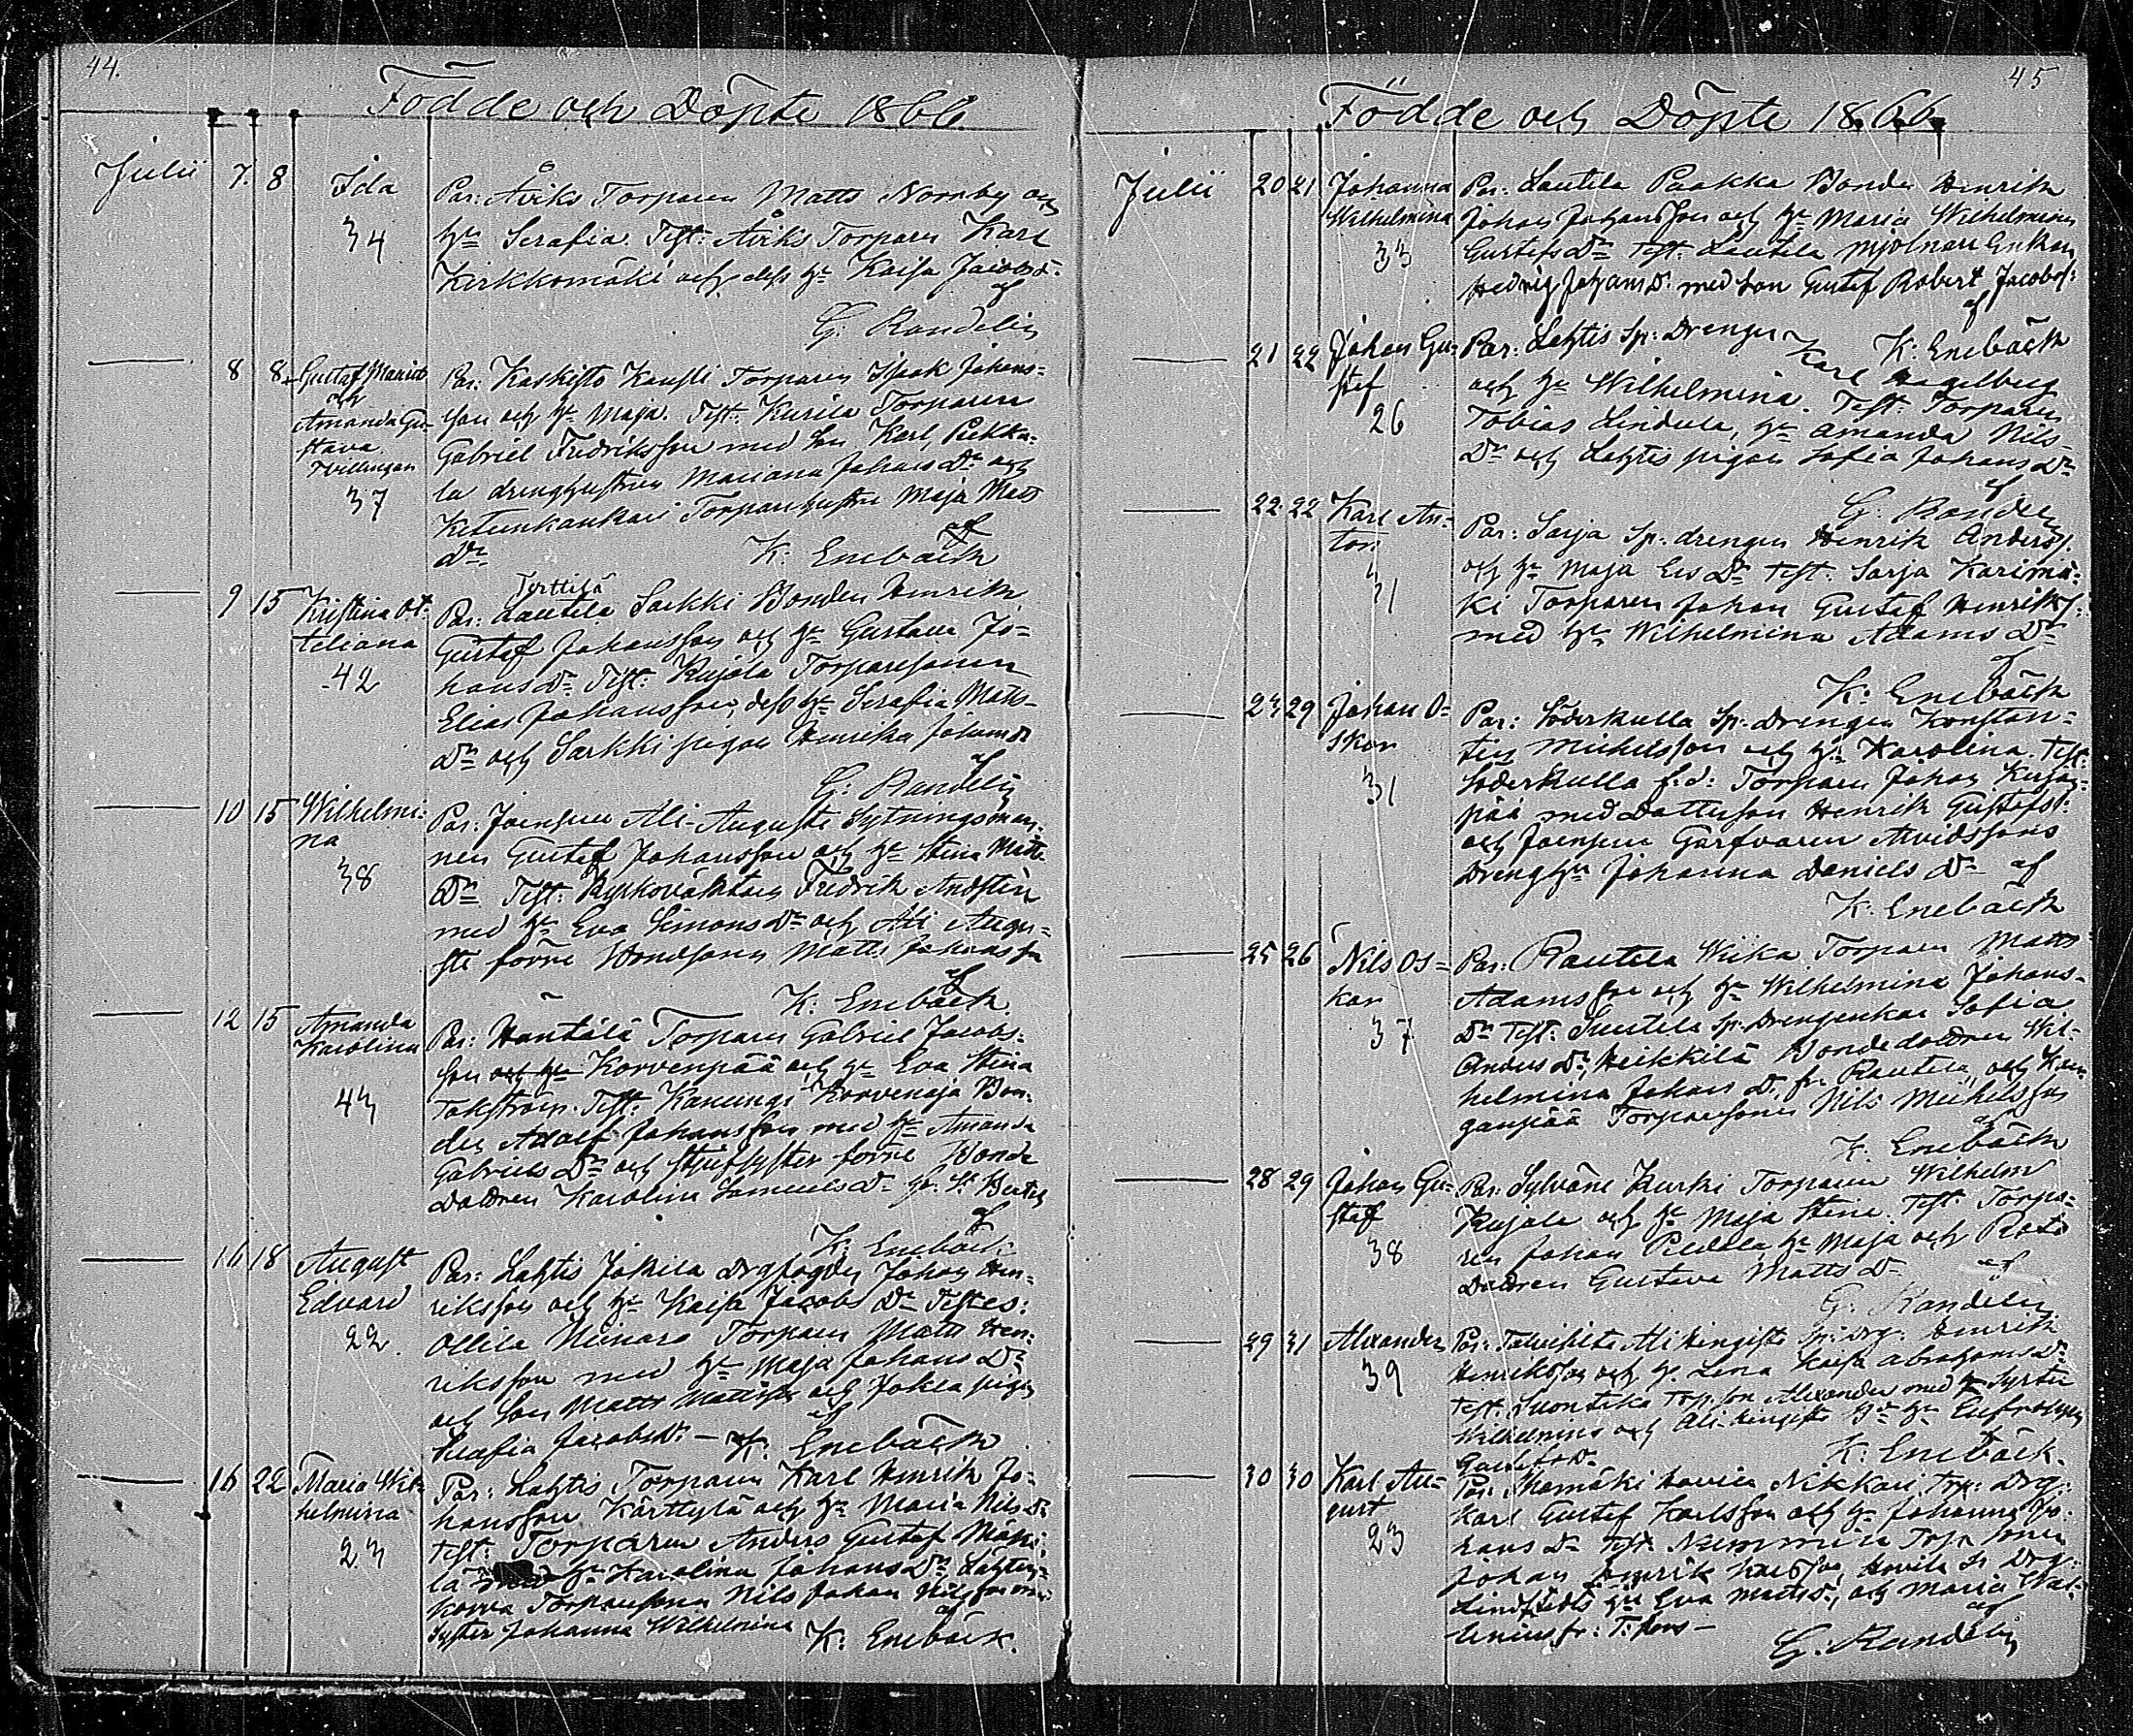 44.
Födde och Döpte 1866.
Julii 7. 8 Ida
34
Par: Åviks Torparen Matts Normby och
hu Serafia. Test: Åviks Torparen Karl
Kirkkomäki och dess hu Kaisa Jacobsd:
af
G: Randelin
8 8 Gustaf Manits
och
Amanda Gu-
stava
Tvillingar
37
Par: Kaskisto Torparen Isaak Johans-
son och hu Maja. Test: Kurila Torparen
Gabriel Fredriksson med son Karl, Pekka-
la drenghustrun Mariana Johans Dr och
Torparehustru Maja Matts
Dr.
af
K: Enebäck
9 15 Kristina Ot-
teliana
42
Tyttilä
Par: Lautela Sarkki Bonden Henrik
Gustaf Johansson och hu Gustava Jo-
hans Dr Test: Kujola Torparesonen
Elias Johansson, dess hu Serafia Matts
Dr och Sarkki pigan Henrika Johans D
af
G: Randelin
10 15 Wilhelmi-
na
38
Par: Joensuu Ali-Auguste Sytningsman-
nen Gustaf Johansson och hu Stina Matts
Dr Test: Kyrkoväktaren Fredrik Andstén
med hu Eva Simons Dr och Ali Augu-
sti förre Bondsonen Matts Johansson
af
K: Enebäck.
12 15 Amanda
Karolina
43
Par: Hantälä Torparen Gabriel Jacobs-
son och hu Korvenpää och hu Eva Stina
Takström. Test: Kanungi Korvenoja Bon-
den Adolf Johansson med hu Amanda
Gabriels Dr och styfsyster förre Bonde
Dottren Karolina Samuels Dr fr. St Bertby
af
K: Enebäck
16 18 August
Edvard
22.
Par: Lahtis Jokila Drgfogden Johan Hen-
riksson och hu Kaisa Jacobs Dr Testes:
Ollila Torparen Matts Hen-
riksson med hu Maja Johans Dr
och son Matts Mattsson och Jokela pigan
Serafia Jacobsdr. —
af
K: Enebäck
16 22 Maria Wil-
helmina
23
Par: Lahtis Torparen Karl Henrik Jo-
hansson Kärttylä och hu Maria Nils Dr
Test: Torparen Anders Gustaf Mäki-
lä med hu Karolina Johans Dr Lähteen-
korva Torparesonen Nils Johan Nilsson med
syster Johanna Wilhelmina
af
K: Enebäck.
45
Födde och Döpte 1866.
Julii 20 21 Johanna
Wilhelmina
33
Par: Lautela Paakka Bonden Henrik
Johan Johansson och hu Maria Wilhelmina
Gustafs Dr Test: Lautela Mjölnare Enkan
Hedvig Johans D. med son Gustaf Robert Jacobss:
af
K: Enebäck
21 22 Johan Gu-
staf
26
Par: Lahtis Sp: Drengen
Karl Hagelberg
och hu Wilhelmina. Test: Torparen
Tobias Lindula, hu Amanda Nils-
Dr och Lahtis pigan Sofia Johans Dr
af
G. Randelin
22 22 Karl An-
ton
31
Par: Sarja Sp: drengen Henrik Anders s.
och hu Maja Eis Dr Test: Sarja Karimä-
ki Torparen Johan Gustaf Henriks s:
med hu Wilhelmina Adams Dr
af
K: Enebäck
23 29 Johan O-
skar
31
Par: Söderkulla Sp. Drengen Konstan-
tin Michelsson och hu Karolina. Test:
Söderkulla f.d. Torparen Johan Kurjan-
pää med Dotterson Henrik Gustafss.
och Joensuu Garfvaren Arvidssons
Drenghu Johanna Daniels Dr af
K: Enebäck
25 26 Nils Os-
kar
37
Par: Rautela Wiika Torparen Matts
Adamsson och hu Wilhelmina Johans-
Dr Test: Suutela Sp. Drengenkan Sofia
Anders Dr, Heikkilä Bondedottren Wil-
helmina Johans D. fr. Rautela, och
Torparesonen Nils Michelsson
af
K: Enebäck
28 29 Johan Gu-
staf
38
Par: Sylvänä Kurki Torparen Wilhelm
Kujala och hu Maja Stina. Test: Torpa-
ren Johan hu Maja och Rote
Dottren Gustava Matts Dr
af
G. Randelin
29 31 Alexander
39
Par: Ali Kingisto Sp: Drg: Henrik
Henriksson och hu Lena Kaisa Abrahams Dr
Test: Torp. son Alexander med Syster
Wilhelmina och Ali Kingisto hu Eufrosyne
Gustafs Dr
K: Enebäck.
30 30 Karl Au-
gust
23
Par: Nikkari Trp: Drg:
Karl Gustaf Karlsson och hu Johanna Jo-
hans Dr Test: Torp. sonen
Johan Henrik Karlsson, Drg:
Lindstedts hu Eva Mattsdr, och Maria Wal-
af
G: Randelin